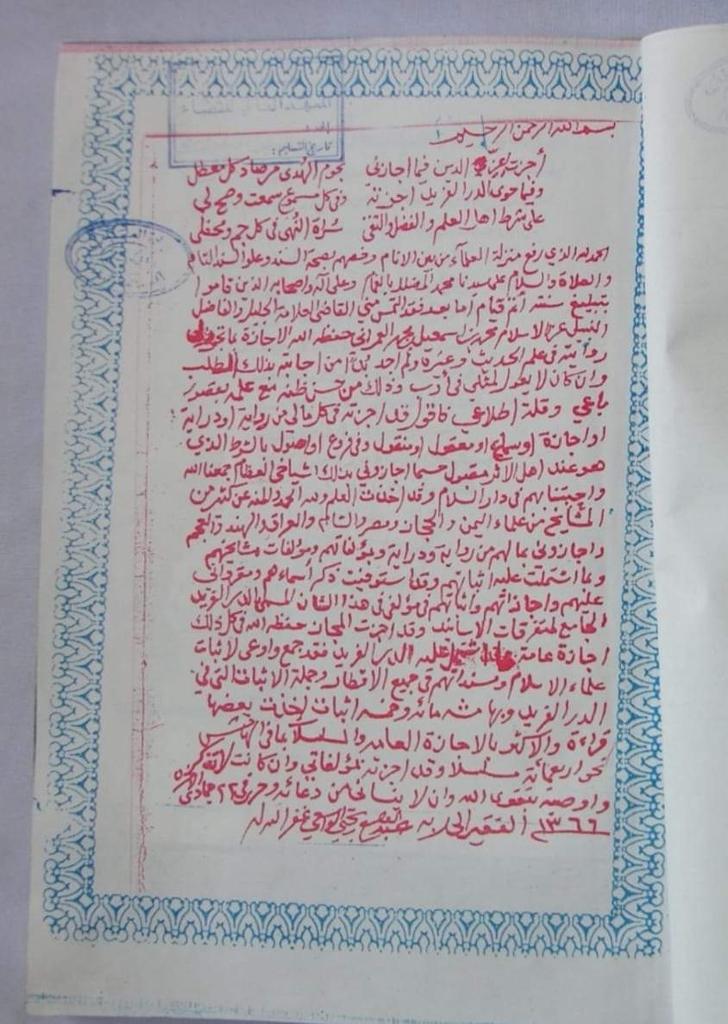 المعهد العالي للقضاء
تاريخ التسليم :
بسم الله الرحمن الرحيم
أجزت لعز الدين فيما اجازني نجوم الهدى من صاد كل معطل
وفيما حوى الدر الفريد اجزته وفي كل مسموع سمعت وصح لي
على شرط اهل العلم والفضل والتقى سراة النهى في كل جمع ومحفل
الحمد لله الذي رفع منزلة العلماء من بين الانام وخصهم بصحة السند وعلو السند التام
والصلاة والسلام على سيدنا محمد المضلل بالغمام وعلى آله واصحابه الذين قاموا
بتبليغ سنته أتم قيام اما بعد فقد التمس مني القاضي العلامة الجليل والفاضل
النبيل عز الاسلام محمد بن اسمعيل العمراني حفظه الله الاجازة بما تجوز لي
روايته في علم الحديث وغيره ولم اجد بدا من اجابته بذلك المطلب
وان كان لا يعول المثلي في أدب وذلك من حسن ظنه مع علمه بقصور
باعي وقلة إطلاعي فاقول قد اجزته في كل مالي من رواية او دراية
او اجازة او سماع او معقول او منقول وفي فروع او اصول بالشرط الذي
هو عند اهل الاثر مقبول حسبما اجازوني بذلك اشياخي العظام جمعنا الله
واحبتنا بهم في دار السلام وقد اخذت العلم ولله الحمد والمنة عن كثير من
المشايخ من علماء اليمن والحجاز ومصر والشام والعراق والهند والعجم
واجازوني بمالهم من رواية ودراية وبمؤلفاتهم ومؤلفات مشائخهم
وبما اشتملت عليه اثباتهم وقد استوفيت ذكر أسماءهم ومقروآتي
عليهم واجازاتهم واثباتهم في مؤلفي في هذا الشان المسمى الدر الفريد
الجامع لمتفرقات الاسانيد وقد اجزت المجاز حفظه الله في كل ذلك
اجازة عامة اشتمل عليه الدر الفريد فقد جمع واوعى لاثبات
علماء الاسلام ومسنداتهم في جميع الاقطار وجملة الاثبات التي في
الدر الفريد وبها مشه مائة وخمسة اثبات اخذت بعضها
قراءة والاكثر بالاجازة العامة والمسلسلات في الهامش
نحو اربعمائة مسلسلا وقد اجزته بمؤلفاتي وان كانت لا تذكر
واوصيه بتقوى الله وان لا ينساني من دعائه وحرر في ٢٢ جمادى
١٣٦٦ الفقير الى ربه عبد الواسع بن يحيى الواسعي غفر الله له